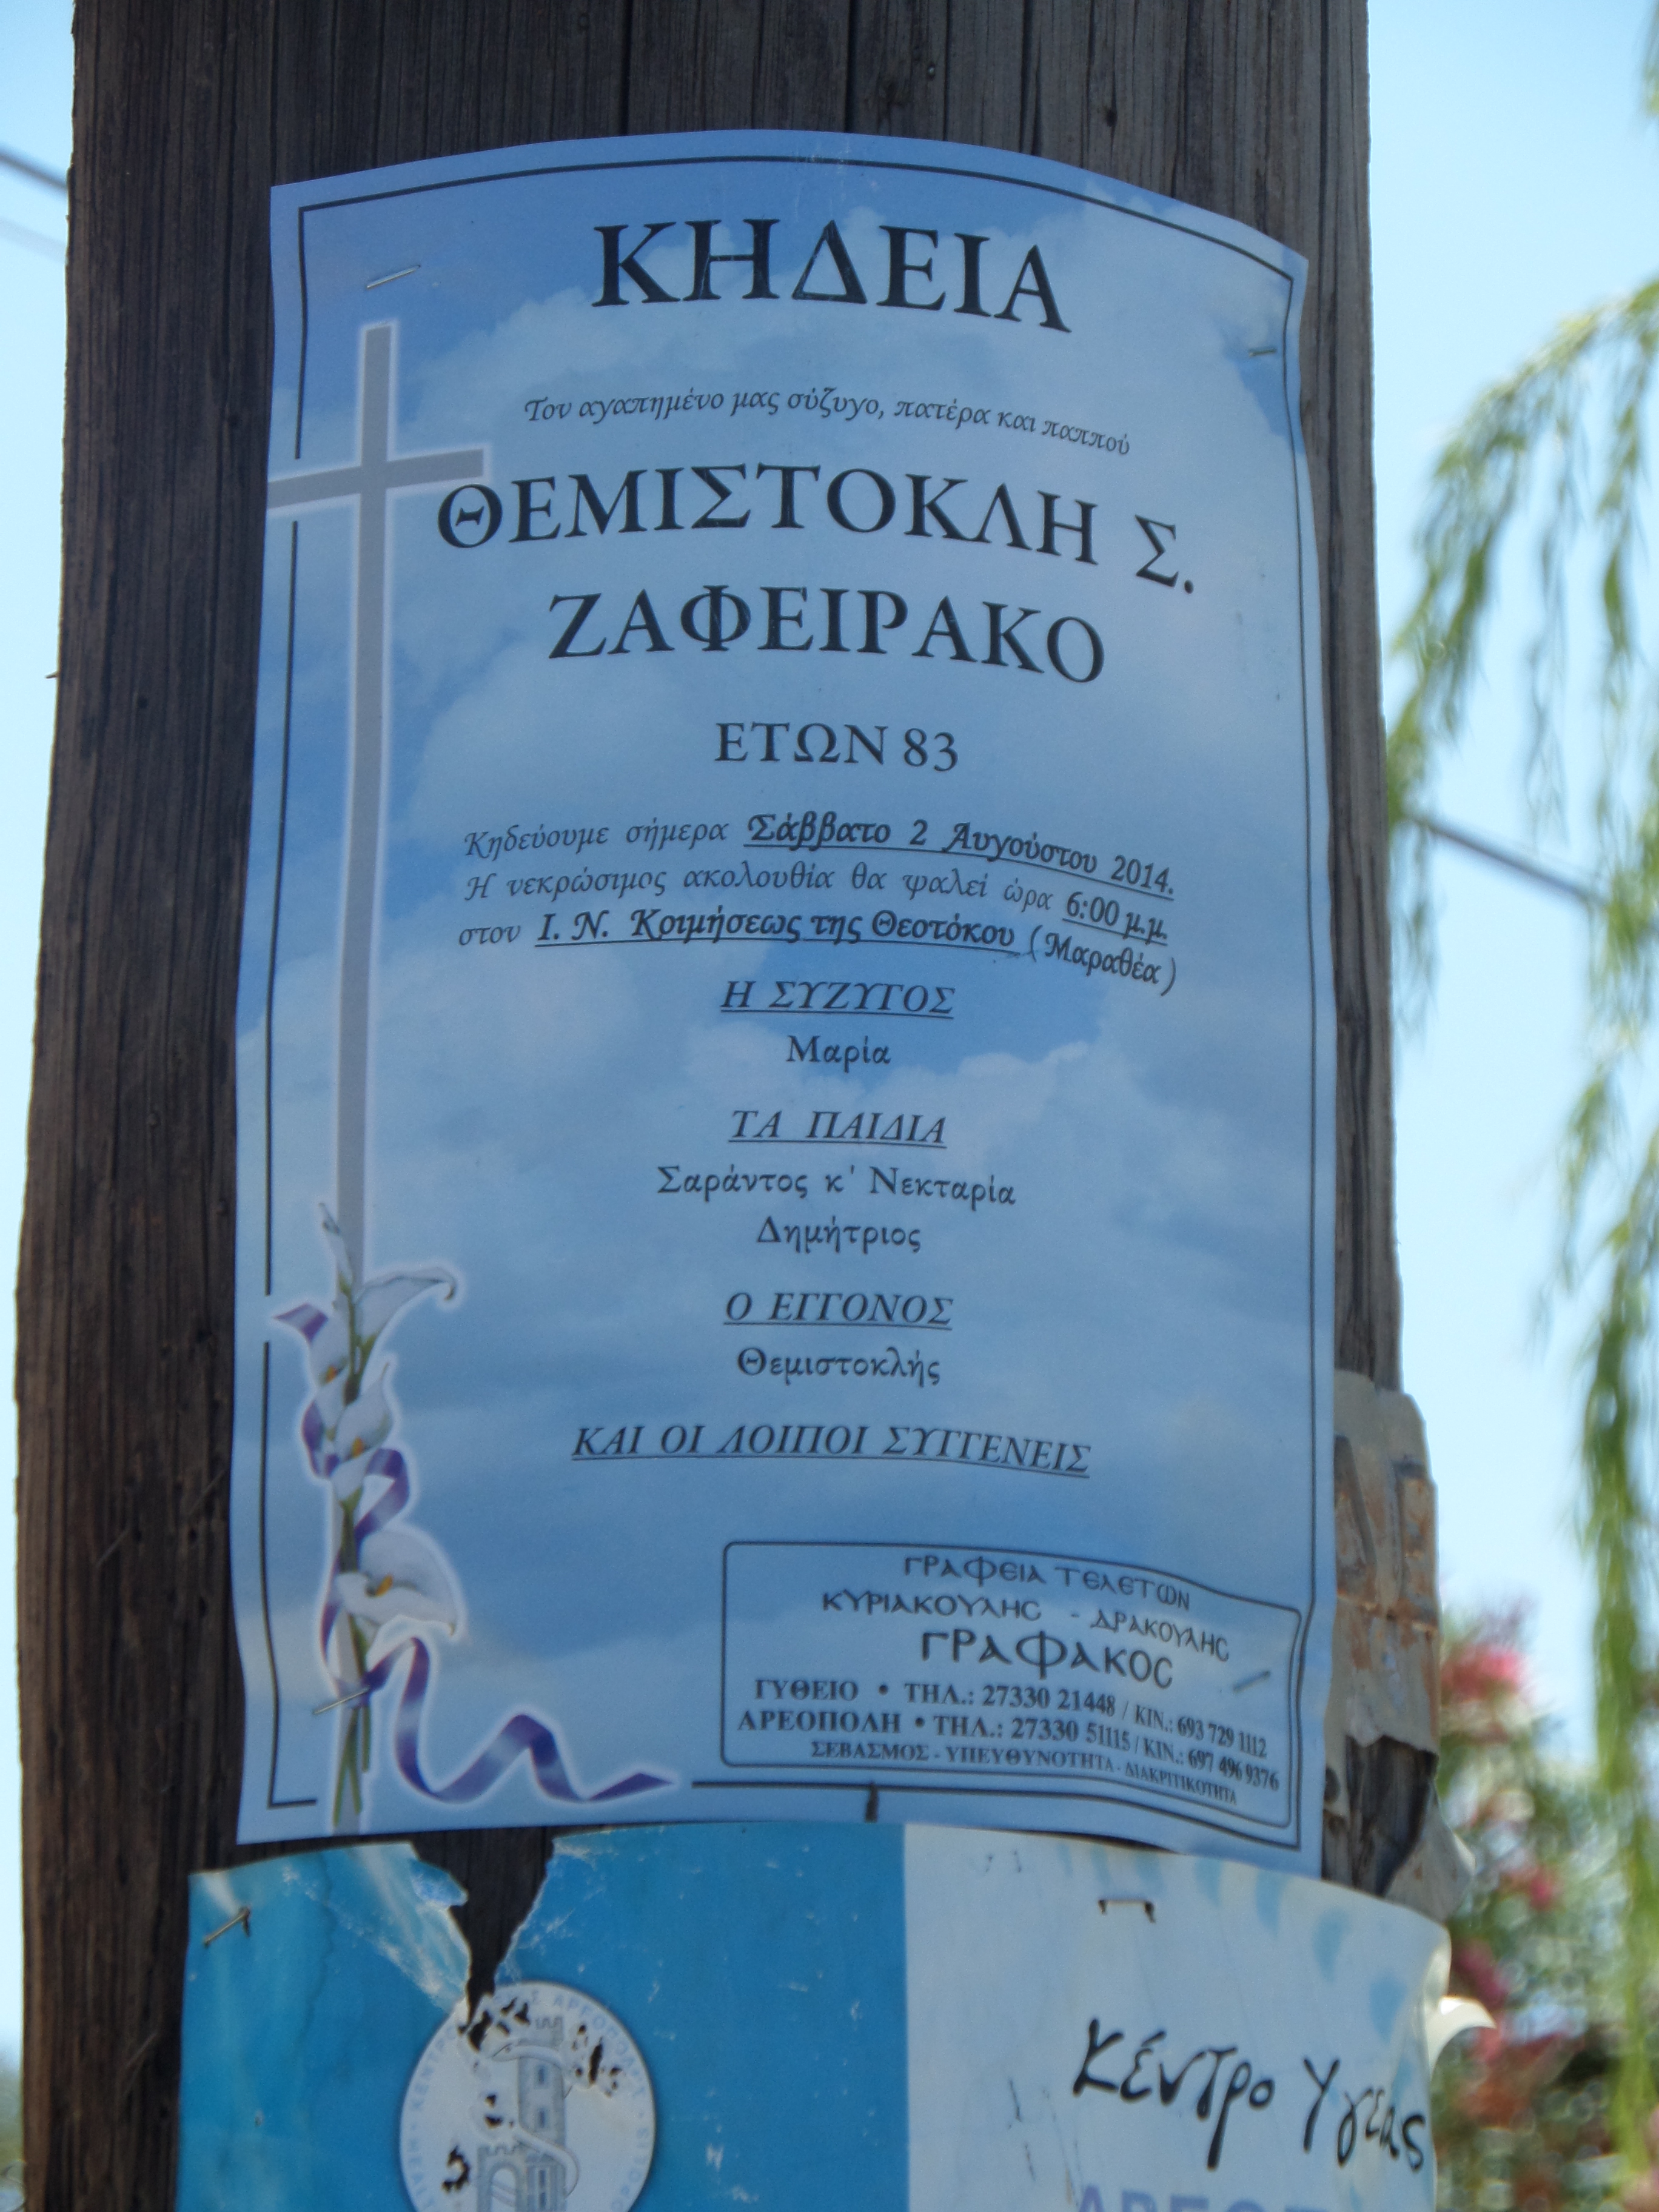 ΚΗΔΕΙΑ
Τον αγαπημένο μας σύζυγο, πατέρα και παππού
ΘΕΜΙΣΤΟΚΛΗ Σ.
ΖΑΦΕΙΡΑΚΟ
ΕΤΩΝ 83
Κηδεύουμε σήμερα Σάββατο 2 Αυγούστου 2014.
Η νεκρώσιμος ακολουθία θα ψαλεί ώρα 6:00 μ.μ.
στον Ι. Ν. Κοιμήσεως της Θεοτόκου (Μαραθέα)
Η ΣΥΖΥΓΟΣ
Μαρία
ΤΑ ΠΑΙΔΙΑ
Σαράντος κ' Νεκταρία
Δημήτριος
Ο ΕΓΓΟΝΟΣ
Θεμιστοκλής
ΚΑΙ ΟΙ ΛΟΙΠΟΙ ΣΥΓΓΕΝΕΙΣ
ΓΡΑΦΕΙΑ ΤΕΛΕΤΩΝ
ΚΥΡΙΑΚΟΥΛΗC - ΔΡΑΚΟΥΛΗC
ΓΡΑΦΑΚΟC
ΓΥΘΕΙΟ • ΤΗΛ.: 27330 21448 / ΚΙΝ.: 693 729 1112
ΑΡΕΟΠΟΛΗ • ΤΗΛ.: 27330 51115 / ΚΙΝ.: 697 496 9376
ΣΕΒΑΣΜΟΣ - ΥΠΕΥΘΥΝΟΤΗΤΑ - ΔΙΑΚΡΙΤΙΚΟΤΗΤΑ
Κέντρο Υγείας